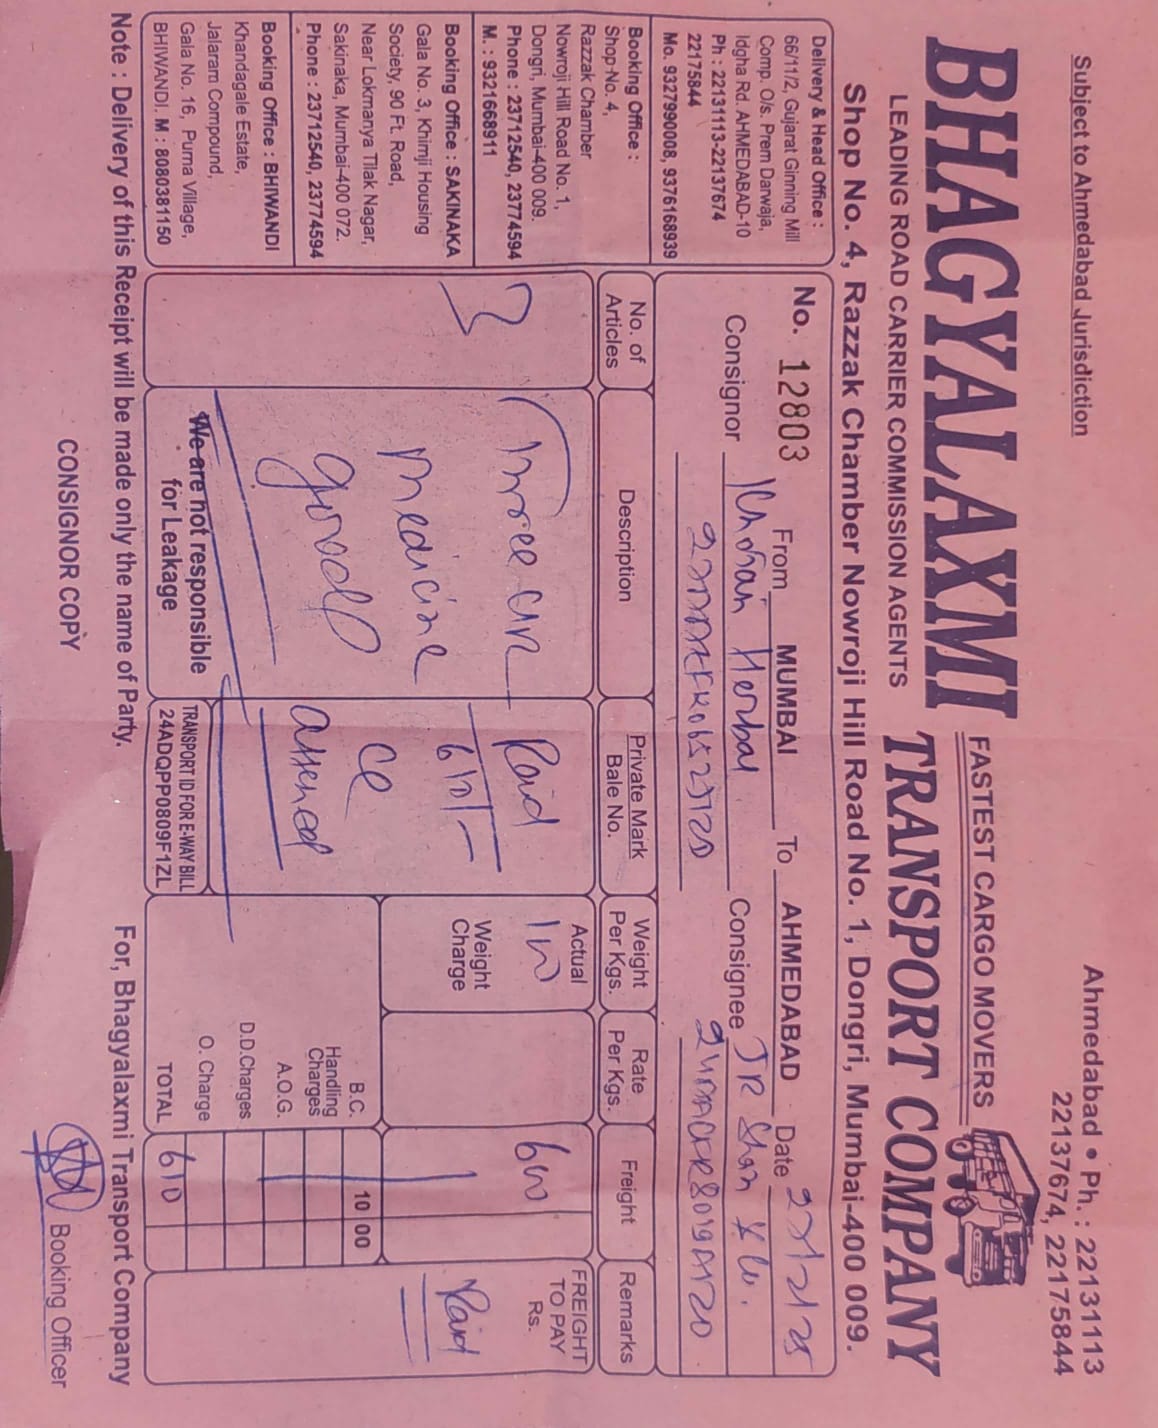 Subject to Ahmedabad Jurisdiction
Ahmedabad • Ph. : 22131113
22137674, 22175844
BHAGYALAXMI TRANSPORT COMPANY
FASTEST CARGO MOVERS
LEADING ROAD CARRIER COMMISSION AGENTS
Shop No. 4, Razzak Chamber Nowroji Hill Road No. 1, Dongri, Mumbai-400 009.
Delivery & Head Office :
66/11/2, Gujarat Ginning Mill
Comp. O/s. Prem Darwaja,
Idgha Rd. AHMEDABAD-10
Ph : 22131113-22137674
22175844
Mo. 9327990008, 9376168939
Booking Office :
Shop-No. 4,
Razzak Chamber
Nowroji Hill Road No. 1,
Dongri, Mumbai-400 009.
Phone : 23712540, 23774594
M. : 9321668911
Booking Office : SAKINAKA
Gala No. 3, Khimji Housing
Society, 90 Ft. Road,
Near Lokmanya Tilak Nagar,
Sakinaka, Mumbai-400 072.
Phone : 23712540, 23774594
Booking Office : BHIWANDI
Khandagale Estate,
Jalaram Compound,
Gala No. 16, Purna Village,
BHIWANDI. M : 8080381150
No. 12803 From MUMBAI To AHMEDABAD Date
Consignor Herbal Consignee
No. of Articles
Description
Private Mark
Bale No.
Weight Per Kgs.
Rate Per Kgs.
Freight
Remarks
3
Three
medicine
goods
Paid
610/-
Actual
Weight Charge
600
FREIGHT TO PAY Rs.
Paid
B.C. 10 00
Handling Charges
A.O.G.
D.D.Charges
O. Charge
TOTAL 610
We are not responsible
for Leakage
TRANSPORT ID FOR E-WAY BILL
24ADQPP0809F1ZL
Note : Delivery of this Receipt will be made only the name of Party.
For, Bhagyalaxmi Transport Company
CONSIGNOR COPY
Booking Officer